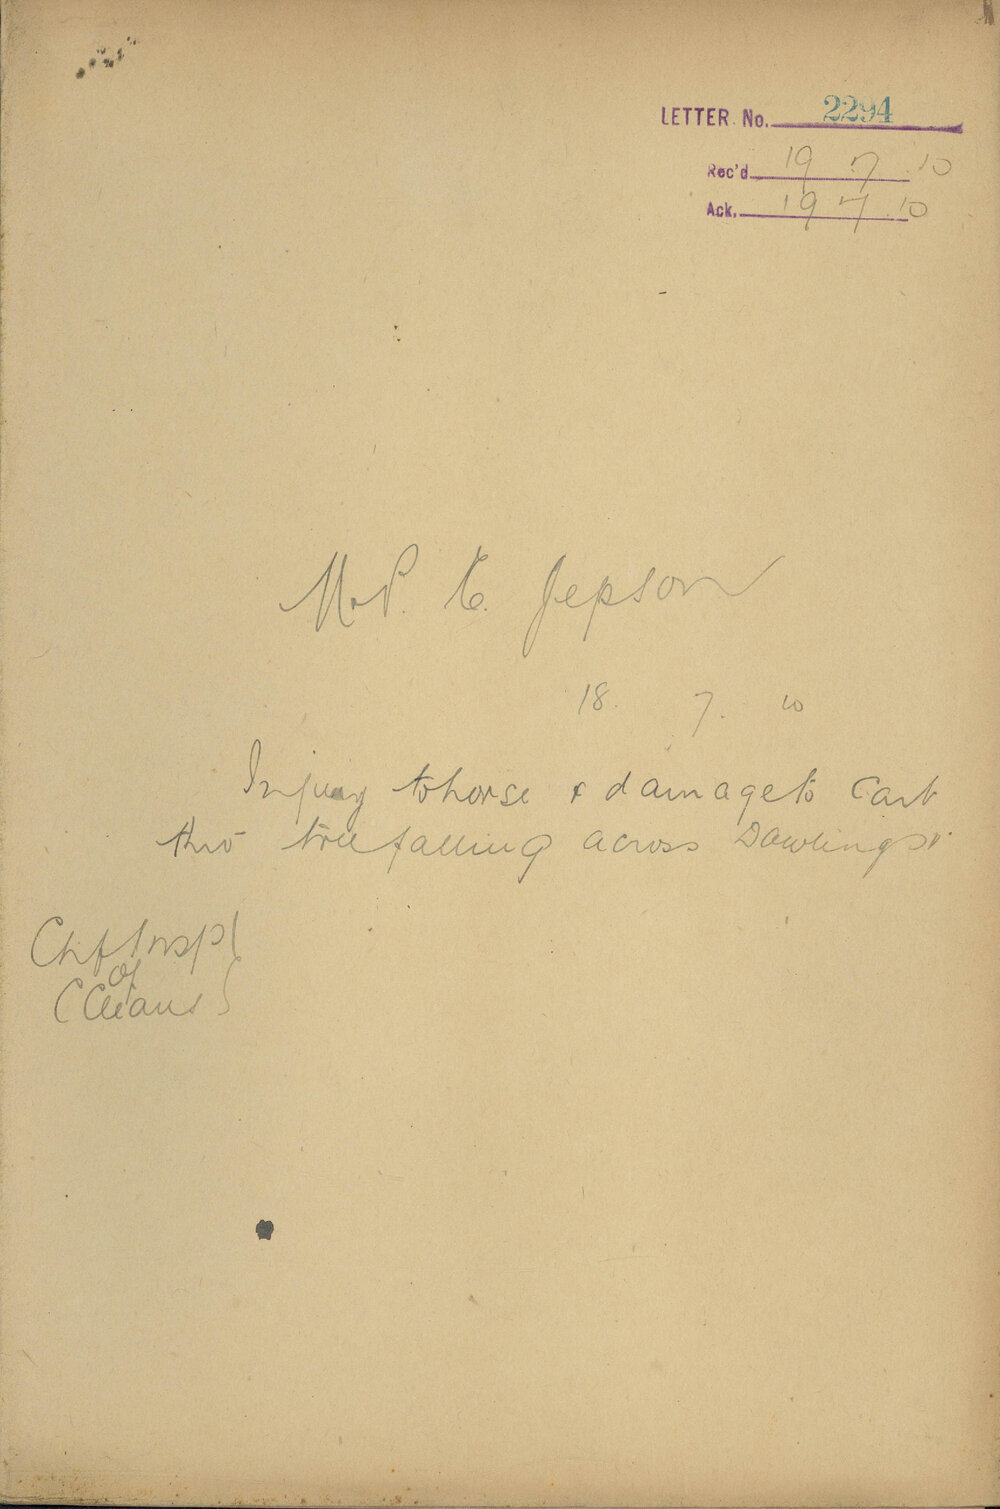 LETTER No. 2294
Rec'd 19 7 10
Ack. 19 7 10
Jepson
18. 7. 10
Injury to horse & damage to Cart
thro tree falling across Dowling St
Chf Insp
of
(Cleans)